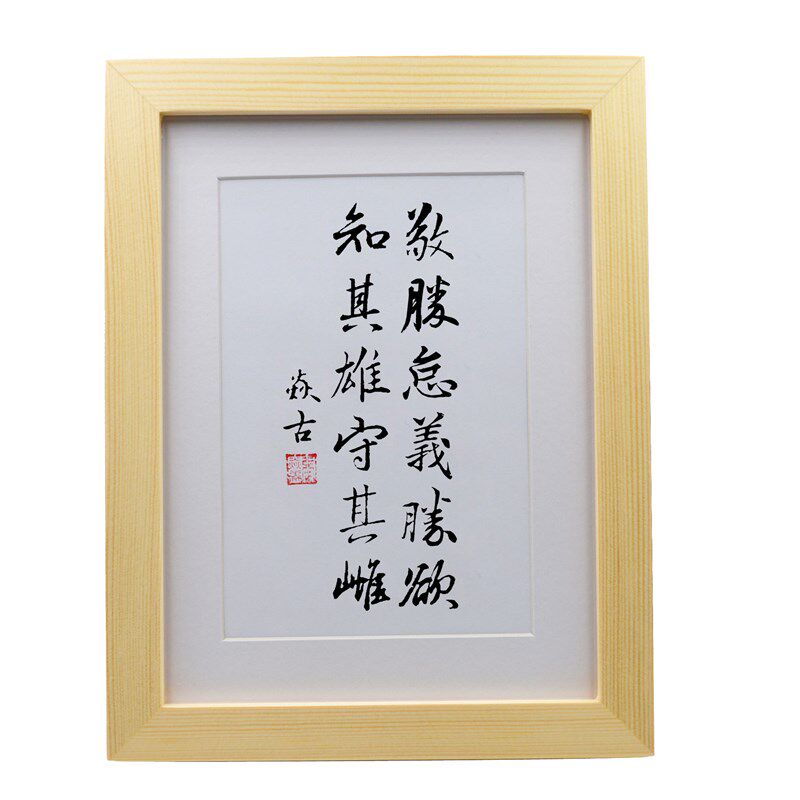 敬勝怠義勝欲
知其雄守其雌
焱古